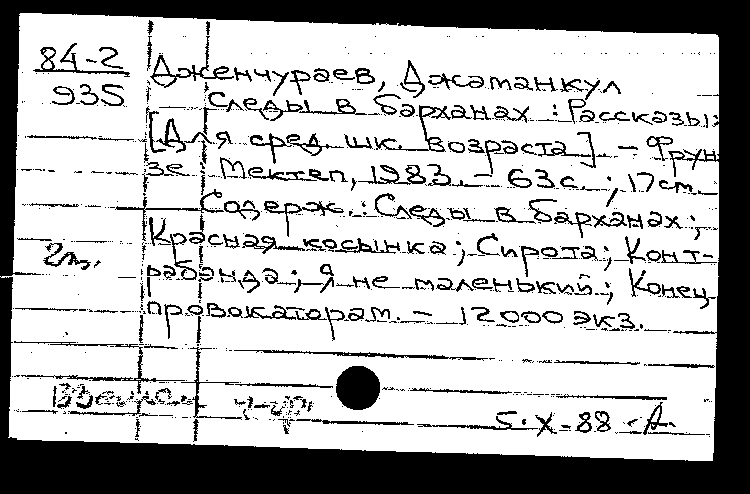 84-2
935
Дженчураев, Джаманкул
Следы в барханах : Рассказы:
[Для сред. шк. возраста] - Фрун-
зе Мектеп, 1983. - 63с. ; 17см.
Содерж.: Следы в барханах;
Красная косынка; Сирота; Конт-
рабанда; Я не маленький; Конец
провокаторам. - 12000 экз.
2п.
5.X-88